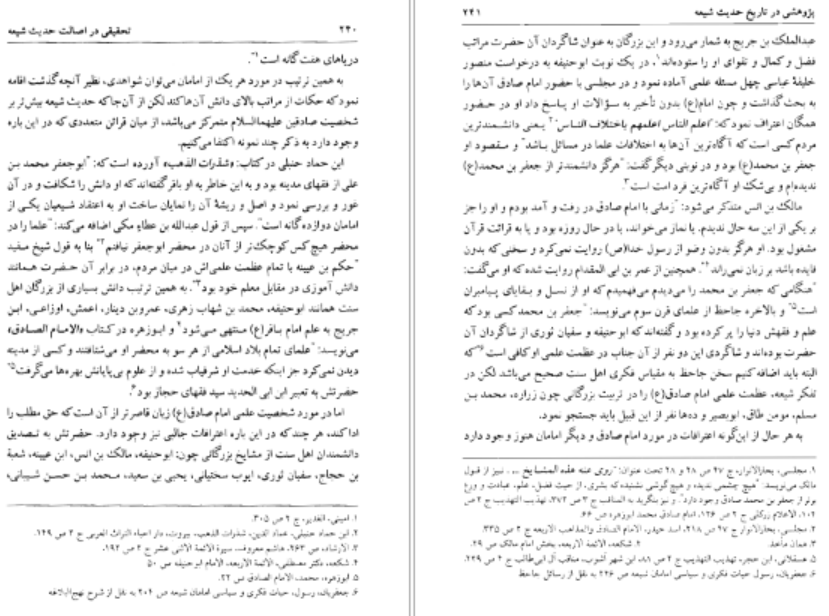 ۲۴۰ تحقیقی در اصالت حدیث شیعه
دریاهای هفت‌گانه است۱".
به همین ترتیب در مورد هر یک از امامان می‌توان شواهدی، نظیر آنچه گذشت اقامه
نمود که حکات از مراتب بالای دانش آن‌ها کند لکن از آن‌جا که حدیث شیعه بیش‌تر بر
شخصیت صادقین علیهماالسلام متمرکز می‌باشد، از میان قرائن متعددی که در این باره
وجود دارد به ذکر چند نمونه اکتفا می‌کنیم.
ابن حماد حنبلی در کتاب: «شذرات الذهب» آورده است که: "ابوجعفر محمد بن
علی از فقهای مدینه بود و به این خاطر به او باقر گفته‌اند که او دانش را شکافت و در آن
غور و بررسی نمود و اصل و ریشهٔ آن را نمایان ساخت او به اعتقاد شیعیان یکی از
امامان دوازده‌گانه است". سپس از قول عبدالله بن عطاء مکی اضافه می‌کند: "علما را در
محضر هیچ کس کوچک‌تر از آنان در محضر ابوجعفر نیافتم۲" بنا به قول شیخ مفید
"حکم بن عیینه با تمام عظمت علمی‌اش در میان مردم، در برابر آن حضرت همانند
دانش آموزی در مقابل معلم خود بود۳". به همین ترتیب دانش بسیاری از بزرگان اهل
سنت همانند ابوحنیفه، محمد بن شهاب زهری، عمروبن دینار، اعمش، اوزاعی، ابن
جریج به علم امام باقر(ع) منتهی می‌شود۴ و ابوزهره در کتاب «الامام الصادق»
می‌نویسد: "علمای تمام بلاد اسلامی از هر سو به محضر او می‌شتافتند و کسی از مدینه
دیدن نمی‌کرد جز اینکه خدمت او شرفیاب شده و از علوم بی‌پایانش بهره‌ها می‌گرفت۵"
حضرتش به تعبیر ابن ابی الحدید سید فقهای حجاز بود۶.
اما در مورد شخصیت علمی امام صادق(ع) زبان قاصرتر از آن است که حق مطلب را
ادا کند، هر چند که در این باره اعترافات جالبی نیز وجود دارد. حضرتش به تصدیق
دانشمندان اهل سنت از مشایخ بزرگانی چون: ابوحنیفه، مالک بن انس، ابن عیینه، شعبة
بن حجاج، سفیان ثوری، ایوب سختیانی، یحیی بن سعید، محمد بن حسن شیبانی،
۱. امینی، الغدیر، ج ۲ ص ۳۰۵.
۲. ابن حماد حنبلی، عماد الدین، شذرات الذهب، بیروت، دار احیاء التراث العربی ج ۲ ص ۱۴۹.
۳. الارشاد، ص ۲۶۳، هاشم معروف، سیرة الائمة الاثنی عشر ج ۲ ص ۱۹۲.
۴. شکعه، دکتر مصطفی، الائمة الاربعه، الامام ابوحنیفه ص ۵۰
۵. ابوزهره، محمد، الامام الصادق ص ۲۲.
۶. جعفریان، رسول، حیات فکری و سیاسی امامان شیعه ص ۲۰۴ به نقل از شرح نهج‌البلاغه
پژوهشی در تاریخ حدیث شیعه ۲۴۱
عبدالملک بن جریج به شمار می‌رود و این بزرگان به عنوان شاگردان آن حضرت مراتب
فضل و کمال و تقوای او را ستوده‌اند۱، در یک نوبت ابوحنیفه به درخواست منصور
خلیفهٔ عباسی چهل مسئله علمی آماده نمود و در مجلسی با حضور امام صادق آن‌ها را
به بحث گذاشت و چون امام(ع) بدون تأخیر به سؤالات او پاسخ داد او در حضور
همگان اعتراف نمود که: "اعلم الناس اعلمهم باختلاف الناس"۲ یعنی دانشمندترین
مردم کسی است که آگاه‌ترین آن‌ها به اختلافات علما در مسائل باشد" و مقصود او
جعفر بن محمد(ع) بود و در نوبتی دیگر گفت: "هرگز دانشمندتر از جعفر بن محمد(ع)
ندیده‌ام و بی‌شک او آگاه‌ترین فرد امت است۳.
مالک بن انس متذکر می‌شود: "زمانی با امام صادق در رفت و آمد بودم و او را جز
بر یکی از این سه حال ندیدم، یا نماز می‌خواند، یا در حال روزه بود و یا به قرائت قرآن
مشغول بود. او هرگز بدون وضو از رسول خدا(ص) روایت نمی‌کرد و سخنی که بدون
فایده باشد بر زبان نمی‌راند۴". همچنین از عمر بن ابی المقدام روایت شده که او می‌گفت:
"هنگامی که جعفر بن محمد را می‌دیدم می‌فهمیدم که او از نسل و بقایای پیامبران
است۵" و بالاخره جاحظ از علمای قرن سوم می‌نویسد: "جعفر بن محمد کسی بود که
علم و فقهش دنیا را پر کرده بود و گفته‌اند که ابوحنیفه و سفیان ثوری از شاگردان آن
حضرت بوده‌اند و شاگردی این دو نفر از آن جناب در عظمت علمی او کافی است۶" که
البته باید اضافه کنیم سخن جاحظ به مقیاس فکری اهل سنت صحیح می‌باشد لکن در
تفکر شیعه، عظمت علمی امام صادق(ع) را در تربیت بزرگانی چون زراره، محمد بن
مسلم، مومن طاق، ابوبصیر و ده‌ها نفر از این قبیل باید جستجو نمود.
به هر حال از این‌گونه اعترافات در مورد امام صادق و دیگر امامان هنوز وجود دارد
۱. مجلسی، بحارالانوار، ج ۴۷ ص ۲۸ و ۲۸ تحت عنوان: "روی عنه هذه المشایخ ... نیز از قول
مالک می‌نویسد: "هیچ چشمی ندیده و هیچ گوشی نشنیده که بشری، از حیث فضل، علم، عبادت و ورع
برتر از جعفر بن محمد صادق وجود دارد". و نیز بنگرید به المناقب ج ۳ ص ۳۷۲، تهذیب التهذیب ج ۲ ص
۱۰۴، الاعلام زرکلی ج ۲ ص ۱۲۶، امام صادق محمد ابوزهره ص ۶۶.
۲. مجلسی، بحارالانوار ج ۴۷ ص ۲۱۸، اسد حیدر، الامام الصادق والمذاهب الاربعه ج ۴ ص ۳۳۵.
۳. همان مأخذ. ۴. شکعه، الائمة الاربعه، بخش امام مالک ص ۲۹.
۵. عسقلانی، ابن حجر، تهذیب التهذیب، ج ۲ ص ۸۸، ابن شهر آشوب، مناقب آل ابی‌طالب ج ۴ ص ۲۴۹.
۶. جعفریان، رسول حیات فکری و سیاسی امامان شیعه ص ۲۴۶ به نقل از رسائل جاحظ